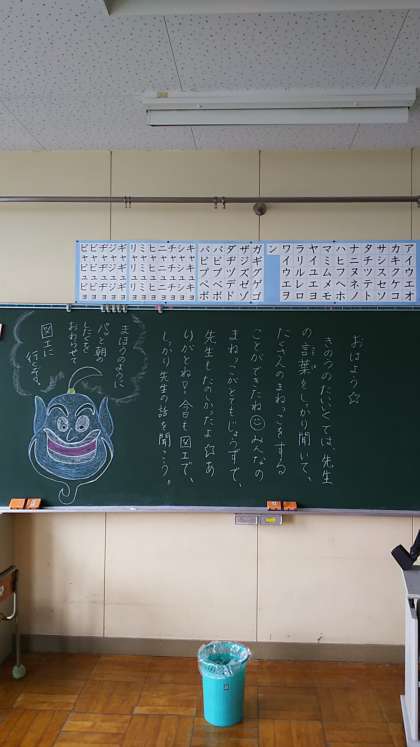 アイウエオ
カキクケコ
サシスセソ
タチツテト
ナニヌネノ
ハヒフヘホ
マミムメモ
ヤイユエヨ
ラリルレロ
ワイウエヲ
ン
ガギグゲゴ
ザジズゼゾ
ダヂヅデド
バビブベボ
パピプペポ
キャキュキョ
シャシュショ
チャチュチョ
ニャニュニョ
ヒャヒュヒョ
ミャミュミョ
リャリュリョ
ギャギュギョ
ジャジュジョ
ヂャヂュヂョ
ビャビュビョ
ピャピュピョ
おはよう☆
きのうのたいいくでは、先生
の言葉をしっかり聞いて、
たくさんのまねっこをする
ことができたね☺みんなの
まねっこがとてもじょうずで、
先生もたのしかったよ☆あ
りがとね!今日も図工で、
しっかり先生の話を聞こう。
まほうのように
パッと朝の
したくを
おわらせて
図工に